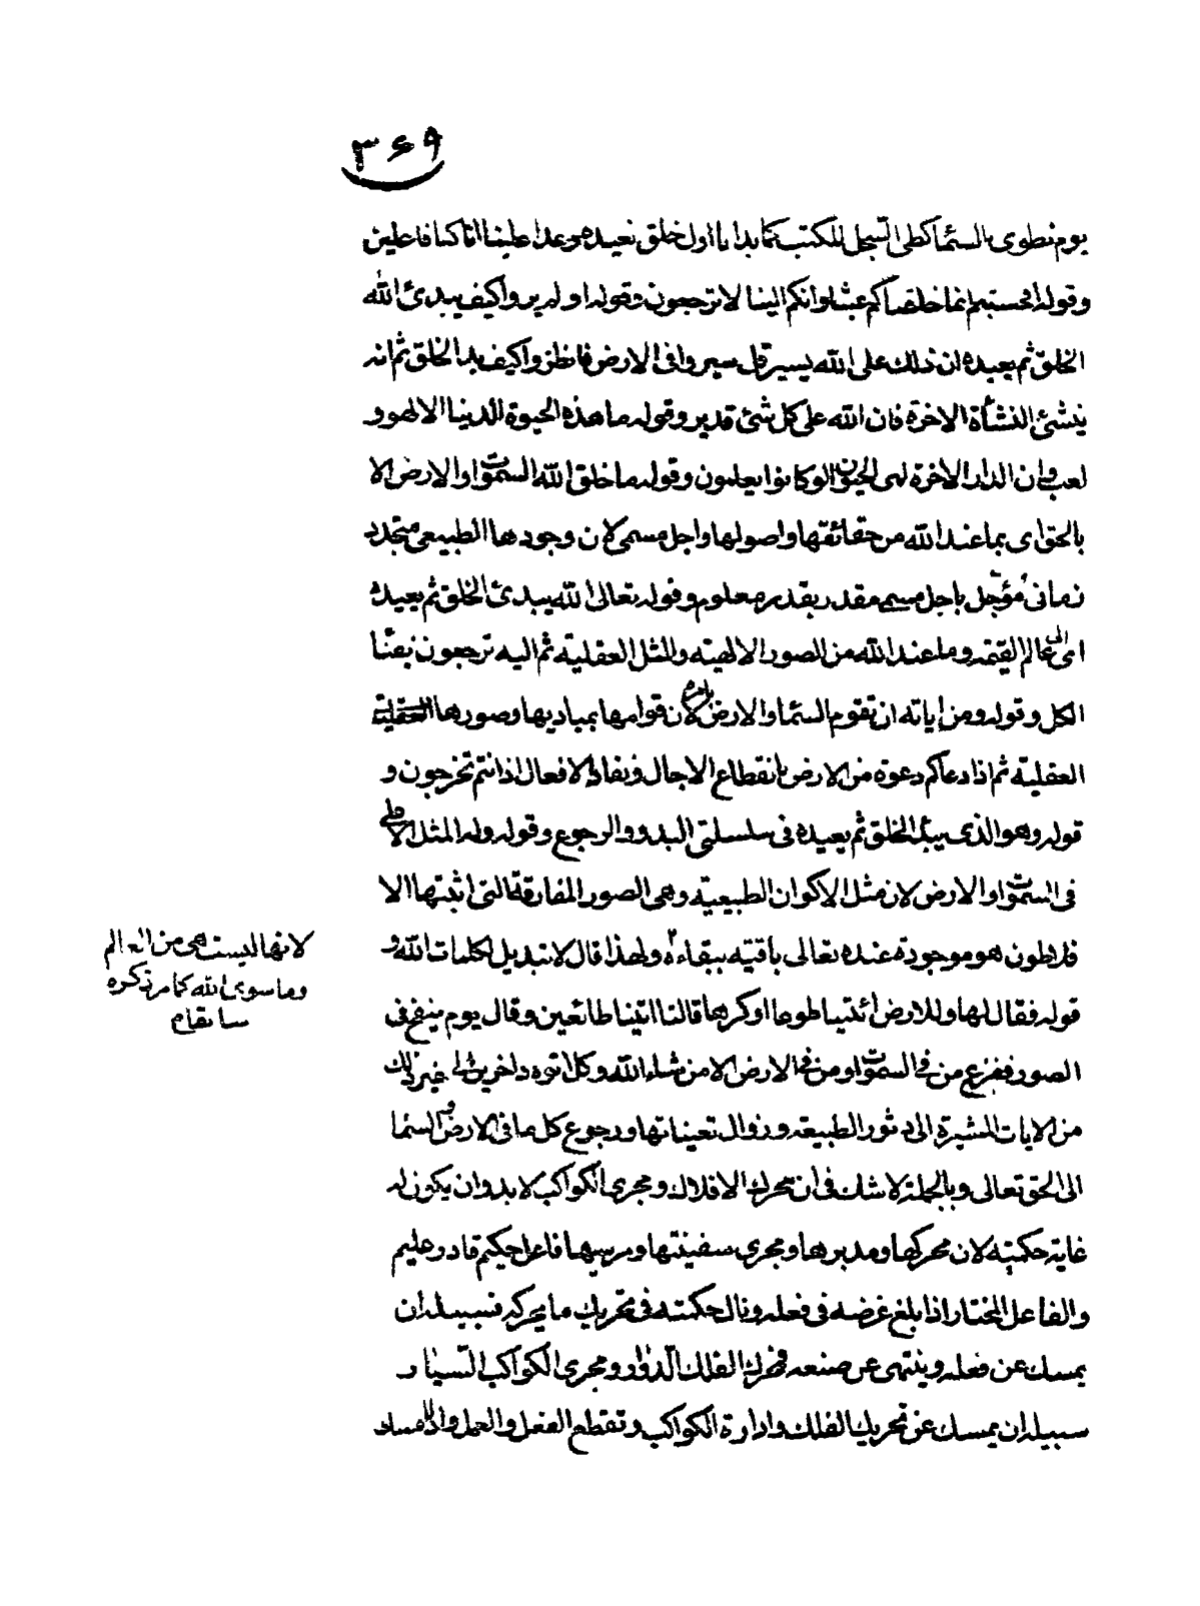 ۳۶۹
يوم نطوى السمآ كطى السجل للكتب كما بدانا اول خلق نعيده وعدا علينا انا كنا فاعلين
وقوله افحسبتم انما خلقناكم عبثا وانكم الينا لا ترجعون وقوله اولم يروا كيف يبدئ الله
الخلق ثم يعيده ان ذلك على الله يسير قل سيروا فى الارض فانظروا كيف بدا الخلق ثم الله
ينشئ النشأة الاخرة فان الله على كل شئ قدير وقوله ما هذه الحيوة الدنيا الا لهو و
لعب وان الدار الاخرة لهى الحيوان لو كانوا يعلمون وقوله ما خلق الله السموات والارض الا
بالحق اى بما عند الله من حقائقها واصولها واجل مسمى لان وجودها الطبيعى متجدد
زمانى مؤجل باجل مسمى مقدر بقدر معلوم وقوله تعالى الله يبدئ الخلق ثم يعيده
اى الى عالم القيمة وما عند الله من الصور الالهية والمثل العقلية ثم اليه ترجعون بفنآ
الكل وقوله ومن اياته ان تقوم السمآ والارض بامره لان قوامها بمباديها وصورها العقلية
العقلية ثم اذا دعاكم دعوة من الارض بانقطاع الاجال ونفاد الافعال اذا انتم تخرجون و
قوله وهو الذى يبدأ الخلق ثم يعيده فى سلسلتى البدو والرجوع وقوله وله المثل الاعلى
فى السموات والارض لان مثل الاكوان الطبيعية وهى الصور المفارقة التى اثبتها الا
فلاطون هو موجودة عنده تعالى باقية ببقاءه ولهذا قال لا تبديل لكلمات الله و
قوله فقال لها وللارض ائتيا طوعا او كرها قالتا اتينا طائعين وقال يوم ينفخ فى
الصور ففزع من فى السموات ومن فى الارض الا من شاء الله وكل اتوه داخرين الى غير ذلك
من الايات المشيرة الى دثور الطبيعة وزوال تعيناتها ورجوع كل ما فى الارض والسمآ
الى الحق تعالى وبالجملة لا شك فى ان محرك الافلاك ومجرى الكواكب لا بد وان يكون له
غاية حكمية لان محركها ومدبرها ومجرى سفينتها ومرسيها فاعل حكيم قادر عليم
والفاعل المختار اذا بلغ غرضه فى فعله ونال حكمته فى تحريك ما يحركه فسبيله ان
يمسك عن فعله وينتهى عن صنعه فمحرك الفلك الدوار ومجرى الكواكب السيار
سبيله ان يمسك عن تحريك الفلك وادارة الكواكب وتقطع الفعل والعمل والامساك
لانها ليست هى من العالم
وما سوى الله كما مر ذكره
سابقا م